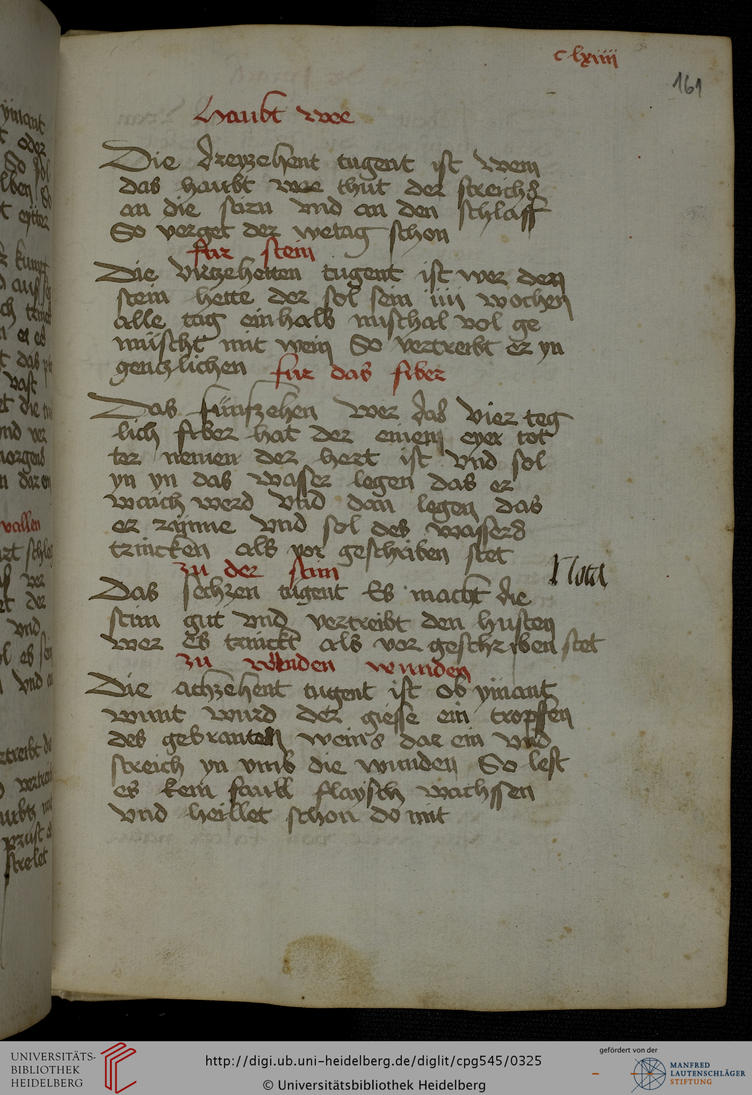 c lxiiii
161
Haubt wee
Die dreyzehent tugent ist wem
das haubt wee thut der streich s
an die stirn vnd an den schlaff
So verget der wetag schon
fur stein
Die virtzehetten tugent ist wer den
stein hette der sol sein iiii wochen
alle tag ein halb nuschal vol ge
muscht mit wein So vertreibt er yn
gentzlichen fur das fiber
Das funfzehen wer das vier teg
lich fiber hat der einem eyer tot
ter nemen der hert ist vnd sol
yn yn das wasser legen das er
waich werd vnd dan legen das
er rynne vnd sol des wassers
trincken als vor geschriben stet
zu der stim
Nota
Das sechzen tugent Es macht die
stim gut vnd vertreibt den husten
wer es trinckt als vor geschriben stet
zu wunden wunden
Die achzehent tugent ist ob ymant
wunt wurd der giesse ein tropffen
des gebranten weins dar ein vnd
streich yn vmb die wunden So lest
es kein faull flaysch wachssen
vnd heillet schon do mit
UNIVERSITÄTS-
BIBLIOTHEK
HEIDELBERG
http://digi.ub.uni-heidelberg.de/diglit/cpg545/0325
© Universitätsbibliothek Heidelberg
gefördert von der
MANFRED
LAUTENSCHLÄGER
STIFTUNG